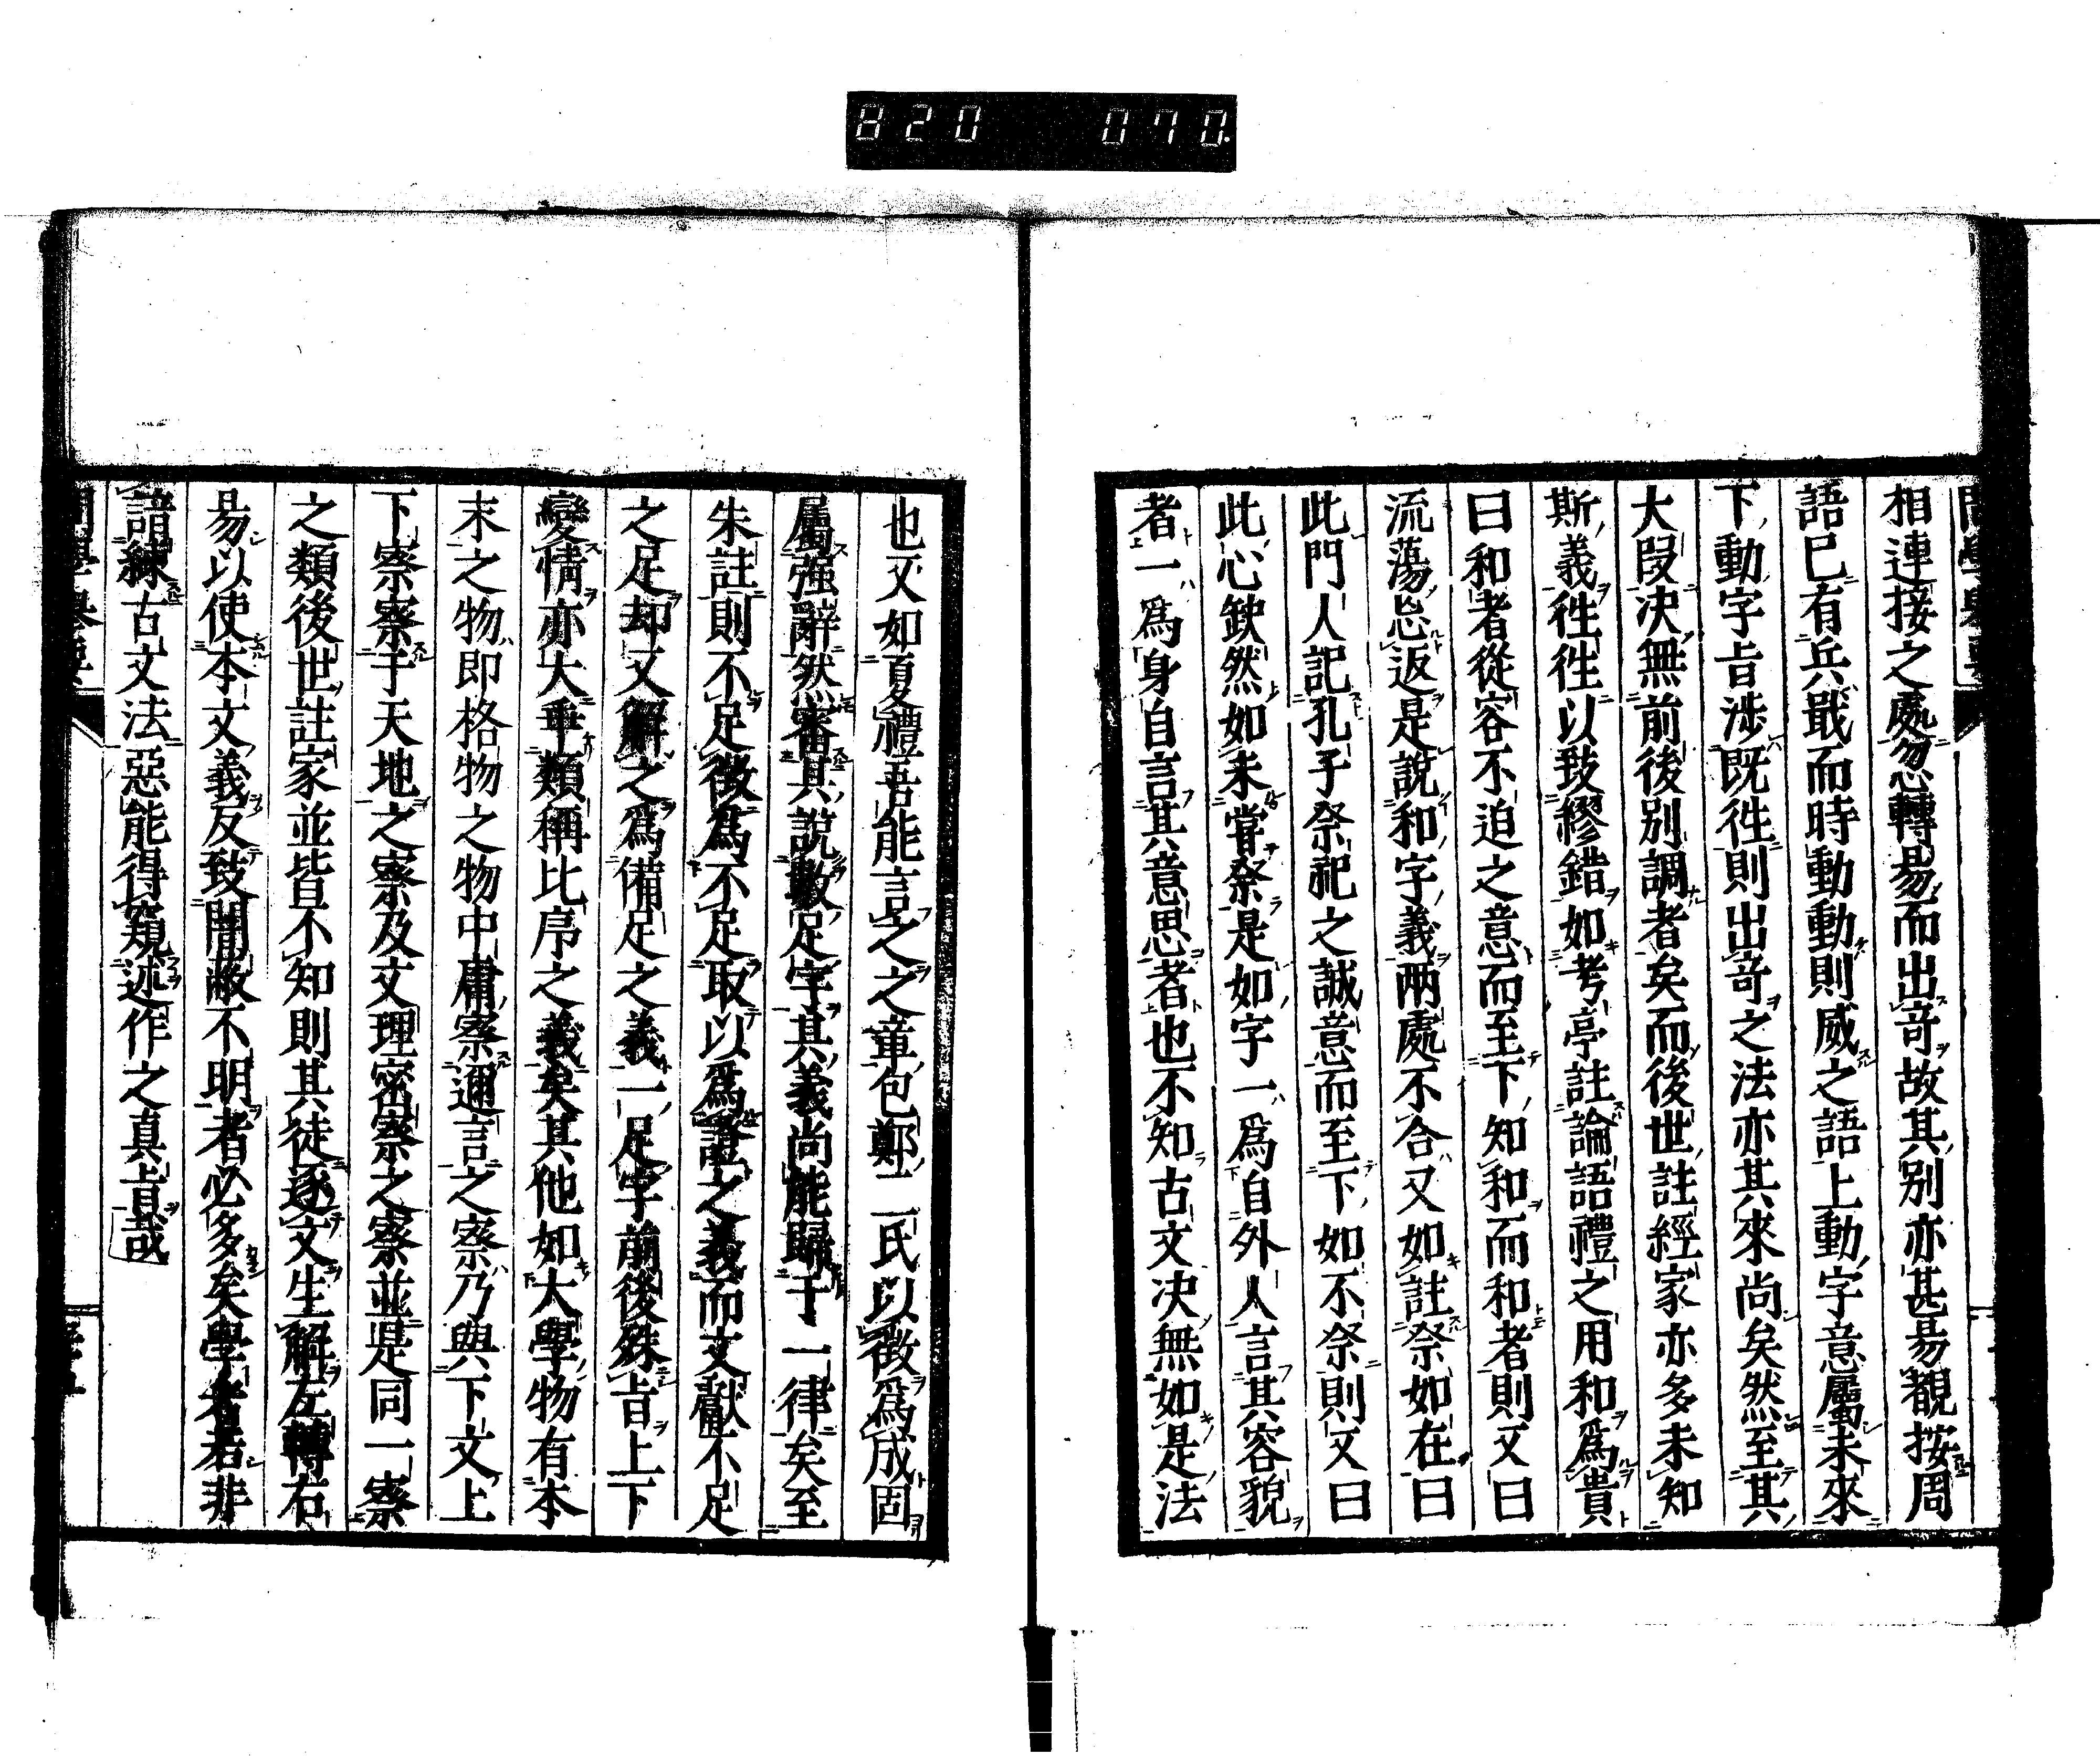 820 070
相連接之處忽轉易而出竒故其別亦甚易覩按周
語已有兵戢而時動動則威之語上動字意屬未來
下動字㫖涉既徃則出竒之法亦其來尚矣然至其
大段决無前後別調者矣而後世註經家亦多未知
斯義徃徃以致繆錯如考亭註論語禮之用和爲貴
曰和者從容不迫之意而至下知和而和者則又曰
流蕩忘返是說和字義兩處不合又如註祭如在曰
此門人記孔子祭祀之誠意而至下如不祭則又曰
此心缺然如未嘗祭是如字一爲自外人言其容貌
者一爲身自言其意思者也不知古文决無如是法
也又如夏禮吾能言之之章包鄭二氏以徴爲成固
屬强辭然審其說數足字其義尚能歸于一律矣至
朱註則不足徴爲不足取以爲證之義而文獻不足
之足却又解之爲備足之義一足字前後殊㫖上下
變情亦大乖類稱比序之義矣其他如大學物有本
末之物即格物之物中庸察邇言之察乃與下文上
下察察于天地之察及文理密察之察並是同一察
之類後世註家並皆不知則其徒逐文生解左轉右
易以使本文義反致闇蔽不明者必多矣學者若非
諳練古文法惡能得窺述作之真㫖哉